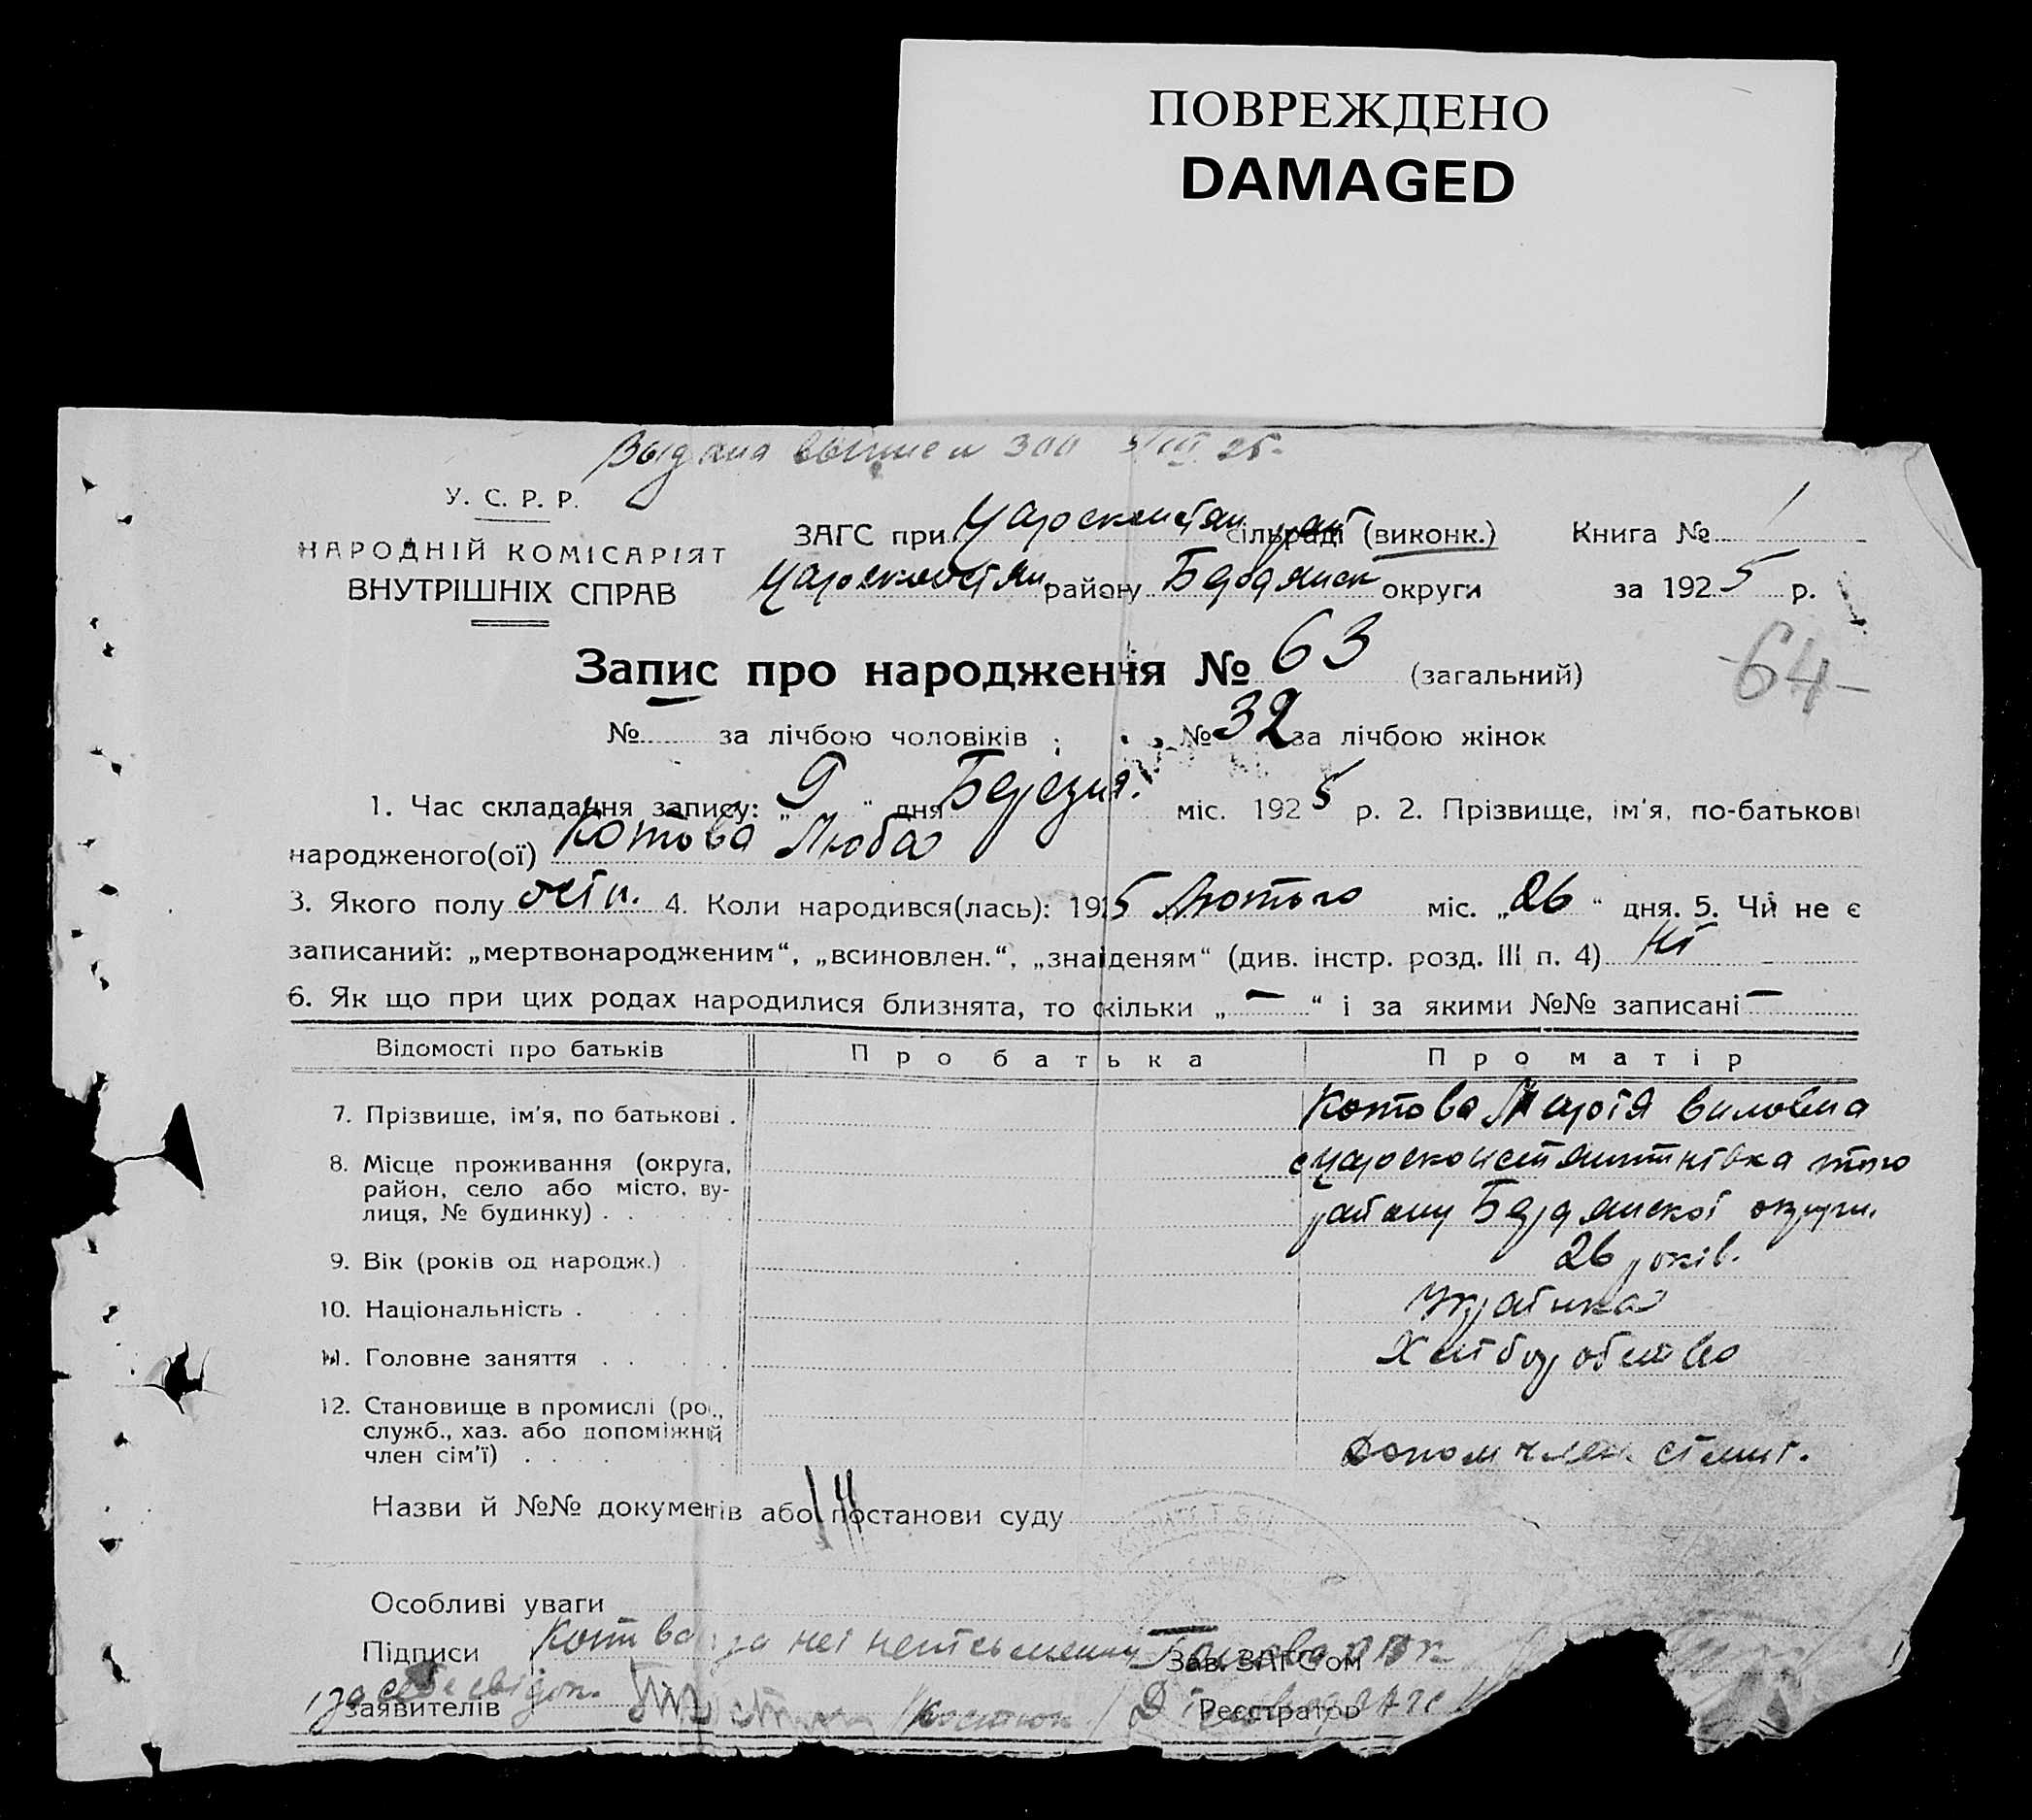 ПОВРЕЖДЕНО
DAMAGED
Выдана 300 25.
У. С. Р. Р.
НАРОДНІЙ КОМІСАРІЯТ
ВНУТРІШНІХ СПРАВ
ЗАГС при Царсконстян сільраді (виконк.) Книга № 1
Царсконстян району Бердянськ округи за 1925 р.
Запис про народження № 63 (загальний)
64
№ за лічбою чоловіків ; № 32 за лічбою жінок
1. Час складання запису: „9“ дня Березня міс. 1925 р. 2. Прізвище, ім'я, по-батькові
народженого(ої) Котова Люба
3. Якого полу жін. 4. Коли народився(лась): 1925 Лютого міс. „26“ дня. 5. Чи не є
записаний: „мертвонародженим“, „всиновлен.“, „знайденям“ (див. інстр. розд. III п. 4) ні
6. Як що при цих родах народилися близнята, то скільки „—“ і за якими №№ записані —
Відомості про батьків Про батька Про матір
7. Прізвище, ім'я, по батькові . Котова Марія
8. Місце проживання (округа, район, село або місто, вулиця, № будинку) . . с Царсконстянтинівка того
району Бердянської округи.
9. Вік (років од народж.) . 26 років.
10. Національність . Українка
11. Головне заняття . . Хліборобство
12. Становище в промислі (роб., служб., хаз. або допоміжний член сім'ї) . . допом член сімї.
Назви й №№ документів або постанови суду
Особливі уваги
Підписи Котова за неї неписьменну Зав. ЗАГС'ом
заявителів за себе свідок. Костюк Реєстратор